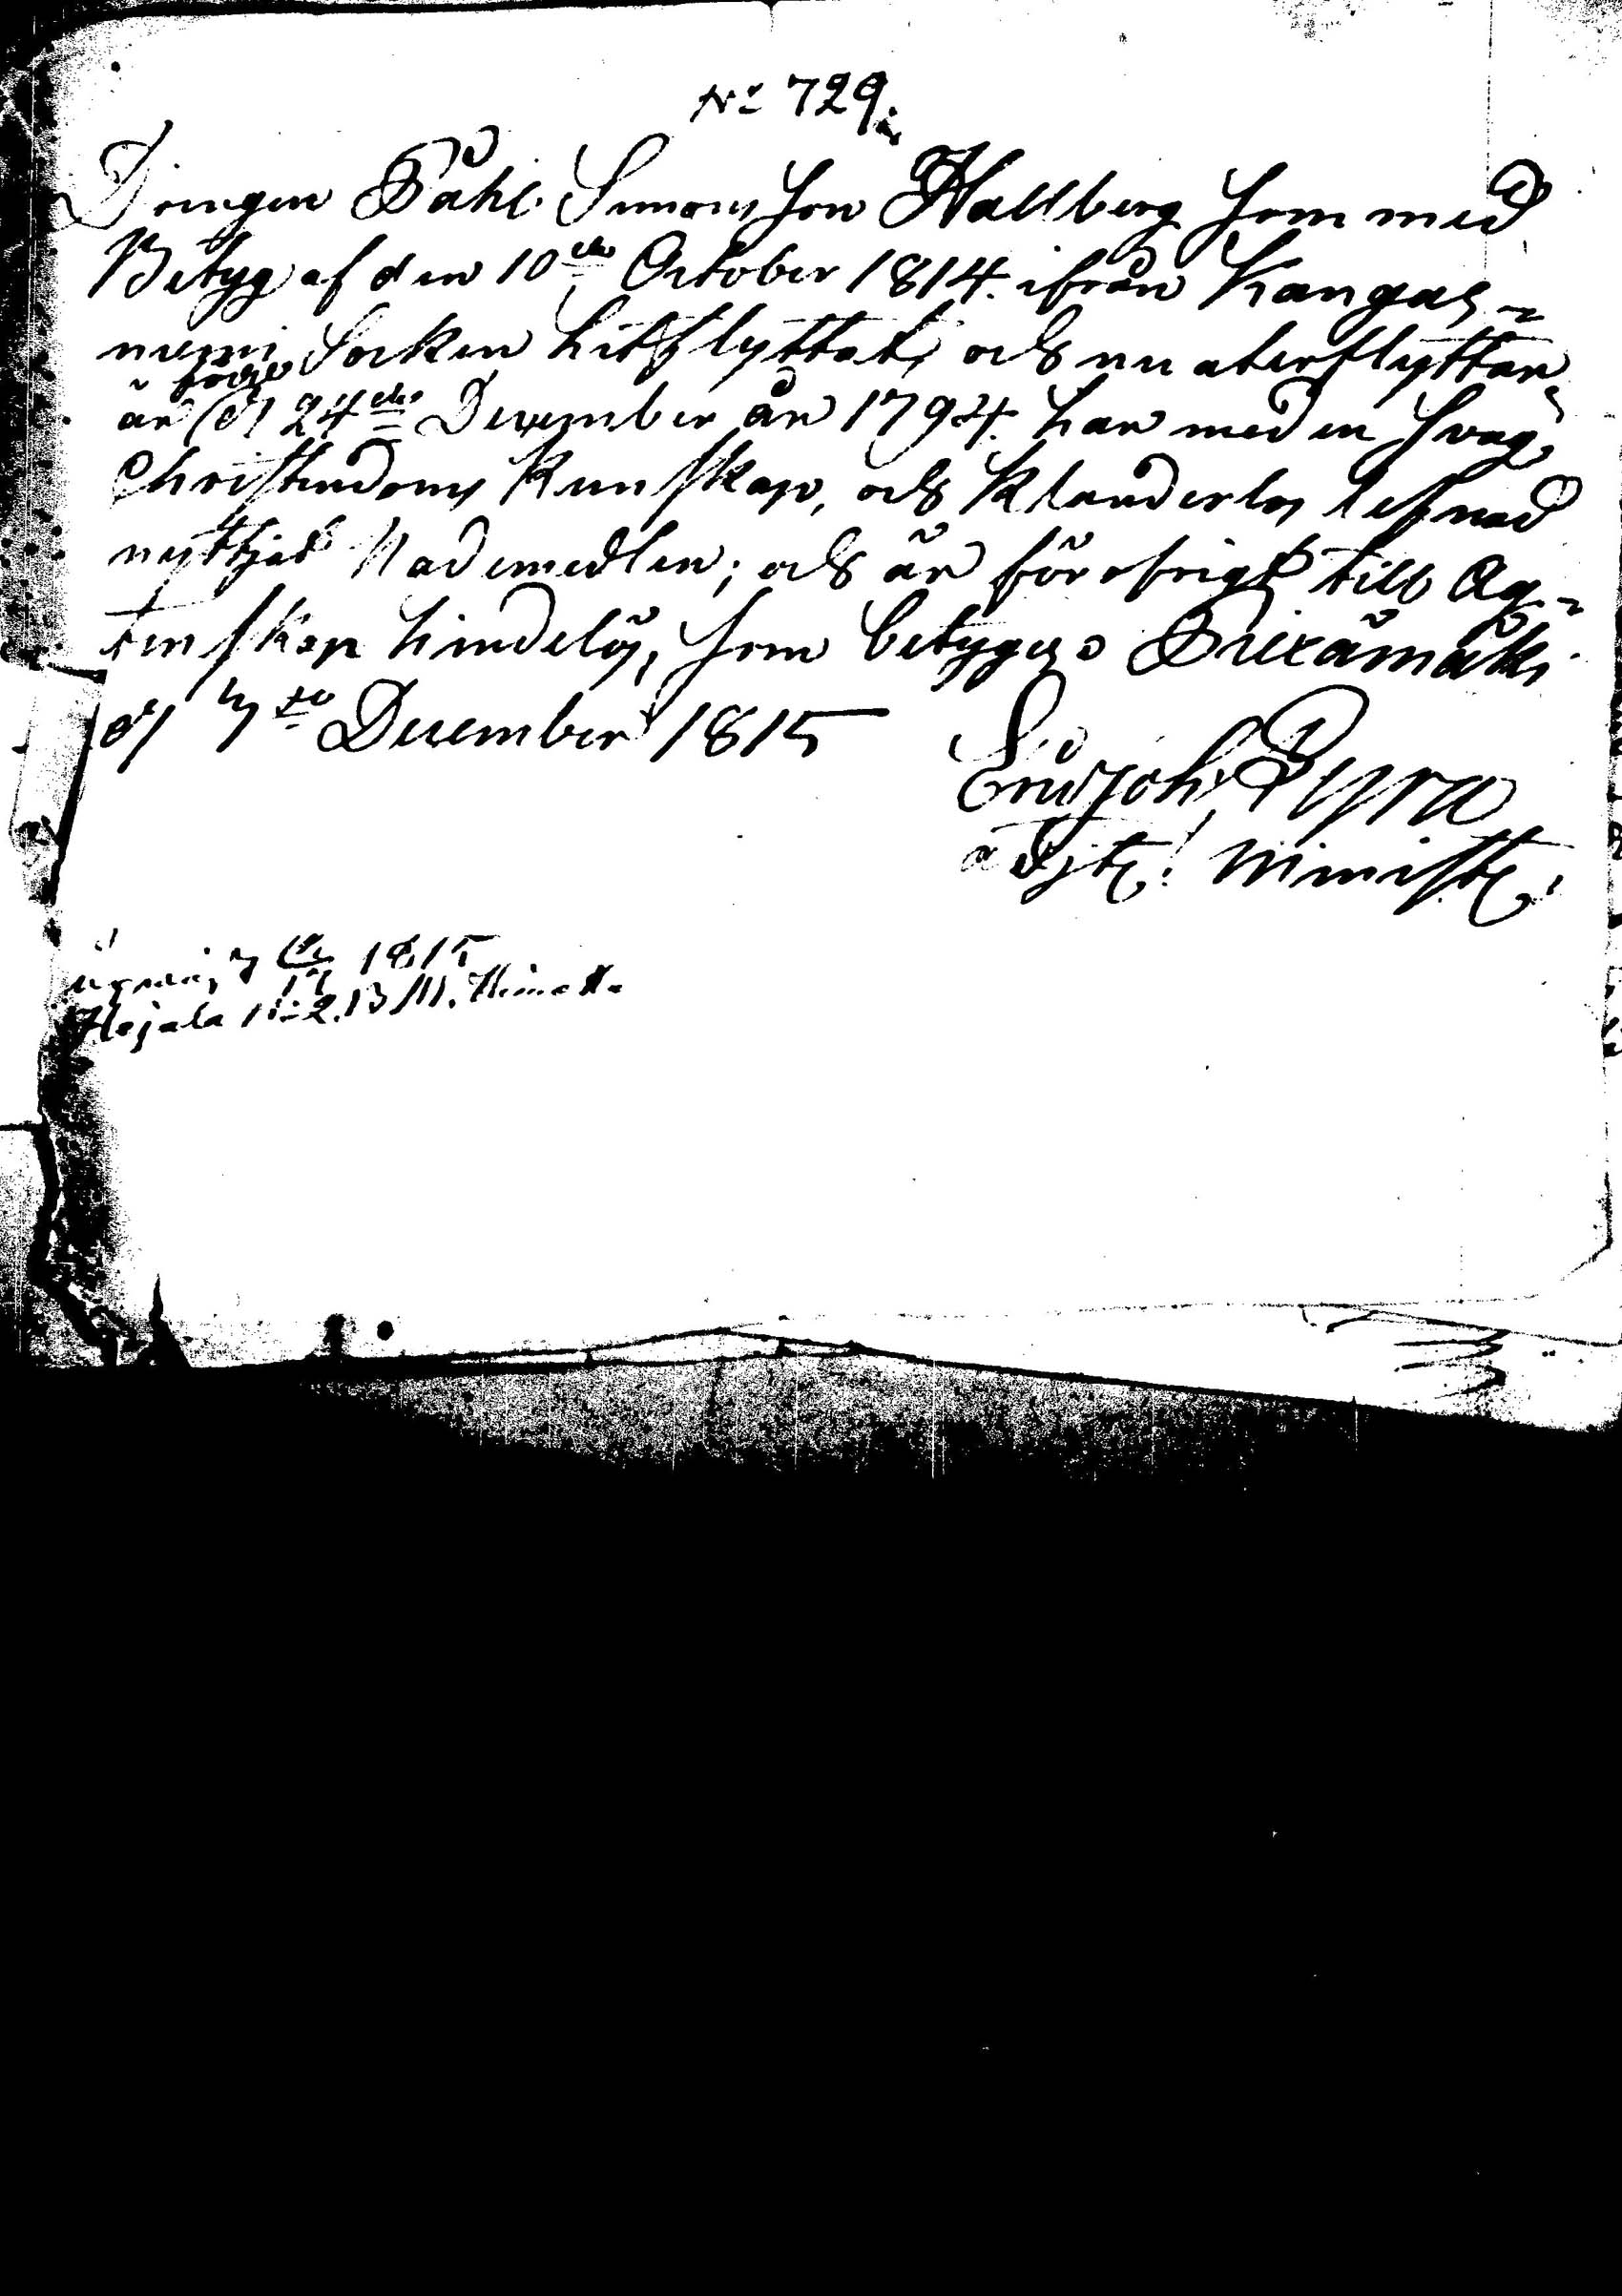 No 729.
Drengen Påhl Simonsson Hallberg som med
Betyg af den 10de October 1814. ifrån Kangas=
niemi Socken hitflyttat, och nu aterflyttar,
är född d/ 24de December år 1794. har med en svag
Christendoms Kunskap, och Klanderlös lefnad
nyttjat Nademedlen; och är för ofrigt till Ag=
tenskap hindelös, som betygas Piexämäki
d/ 7de December 1815
Joh. Pyra
adjt. Minist.
1815
Hojala No 2.